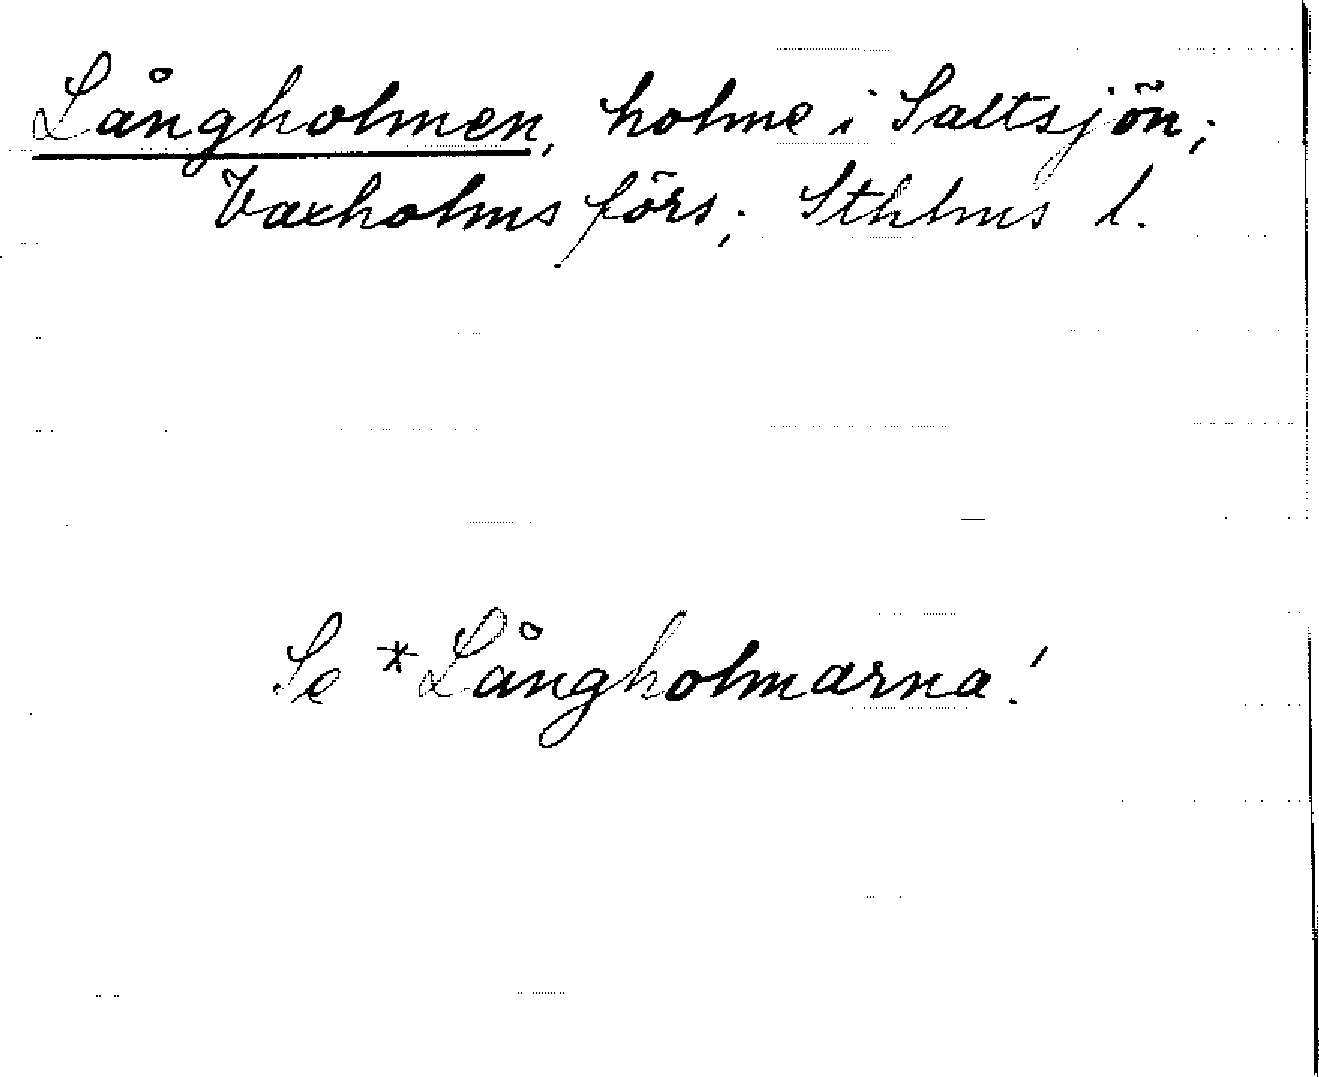 Långholmen, holme i Saltsjön;
Vaxholms förs; Sthlms l.
Se *Långholmarna!